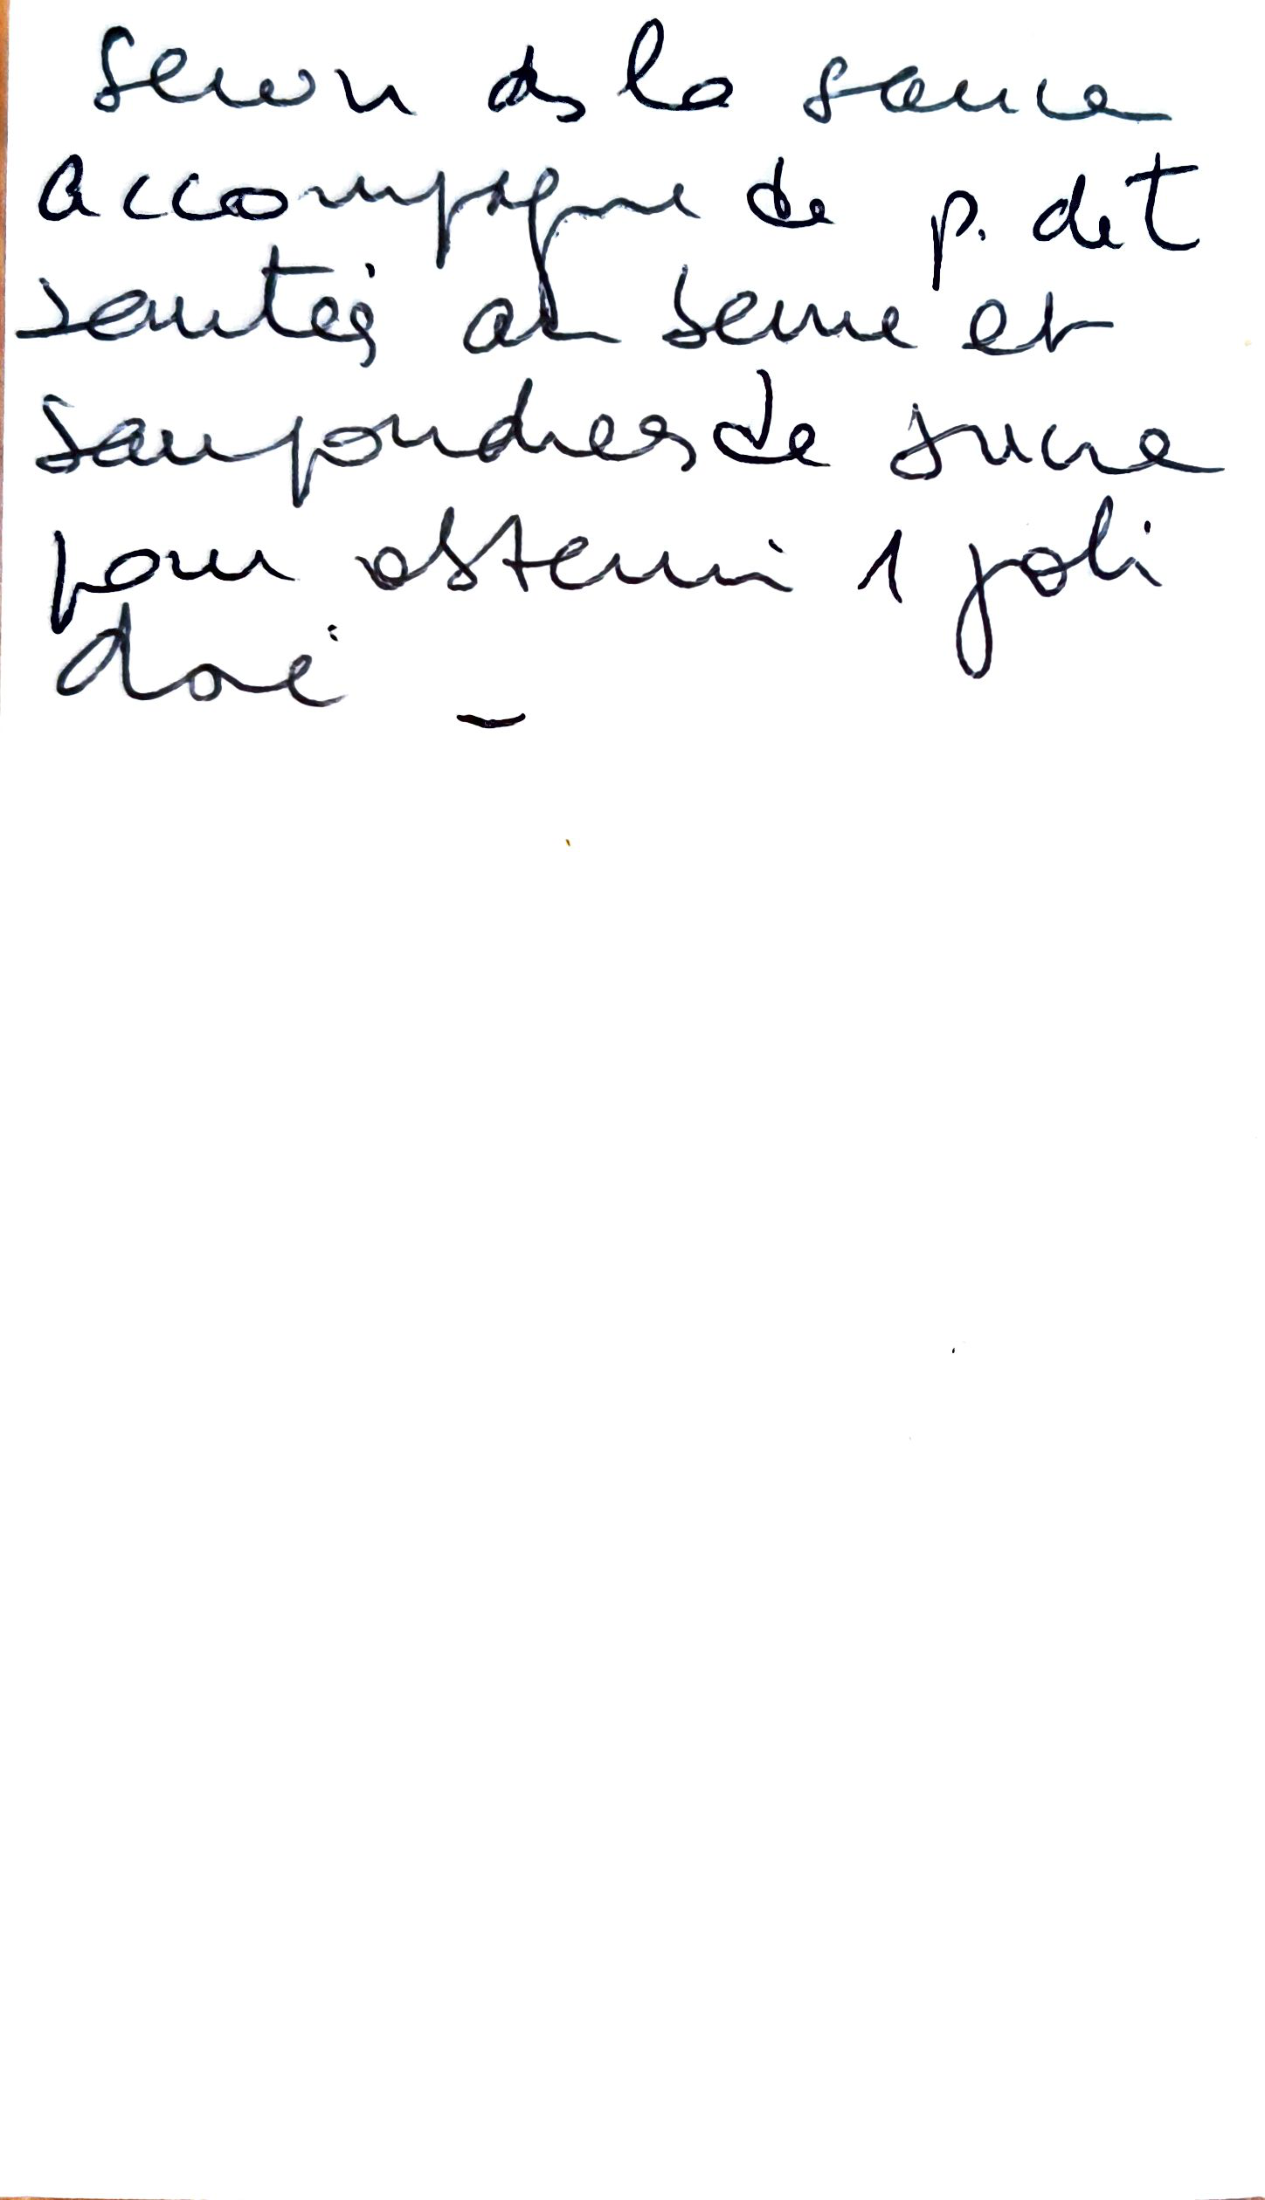 Servir ds la sauce
accompagne de p. de t
sautées au beurre et
saupoudrees de sucre
pour obtenir 1 joli
doré _